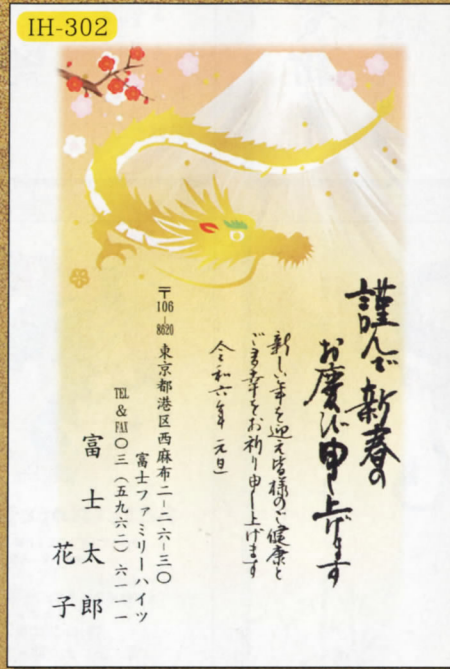 IH-302
謹んで新春の
お慶び申し上げます
新しい年を迎え皆様のご健康と
ご多幸をお祈り申し上げます
令和六年 元旦
〒106-8620 東京都港区西麻布二-二六-三〇
富士ファミリーハイツ
TEL & FAX 〇三(五九六二)六一一一
富士太郎
花子